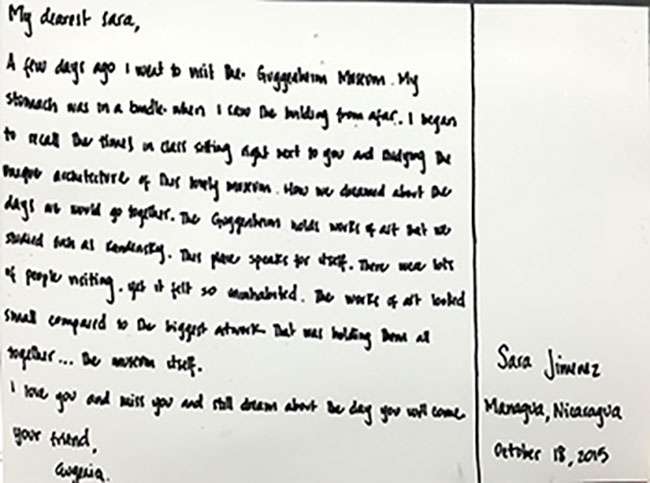 My dearest Sara,
A few days ago I went to visit the Guggenheim Museum. My
stomach was in a bundle when I saw the building from afar. I began
to recall the times in class sitting right next to you and studying the
unique architecture of this lovely museum. How we dreamed about the
days we would go together. The Guggenheim holds works of art that we
studied such as Kandensky. This place speaks for itself. There were lots
of people visiting, yet it felt so uninhabited. The works of art looked
small compared to the biggest artwork that was holding them all
together... the museum itself.
I love you and miss you and still dream about the day you will come
your friend,
Eugenia.
Sara Jimenez
Managua, Nicaragua
October 18, 2015